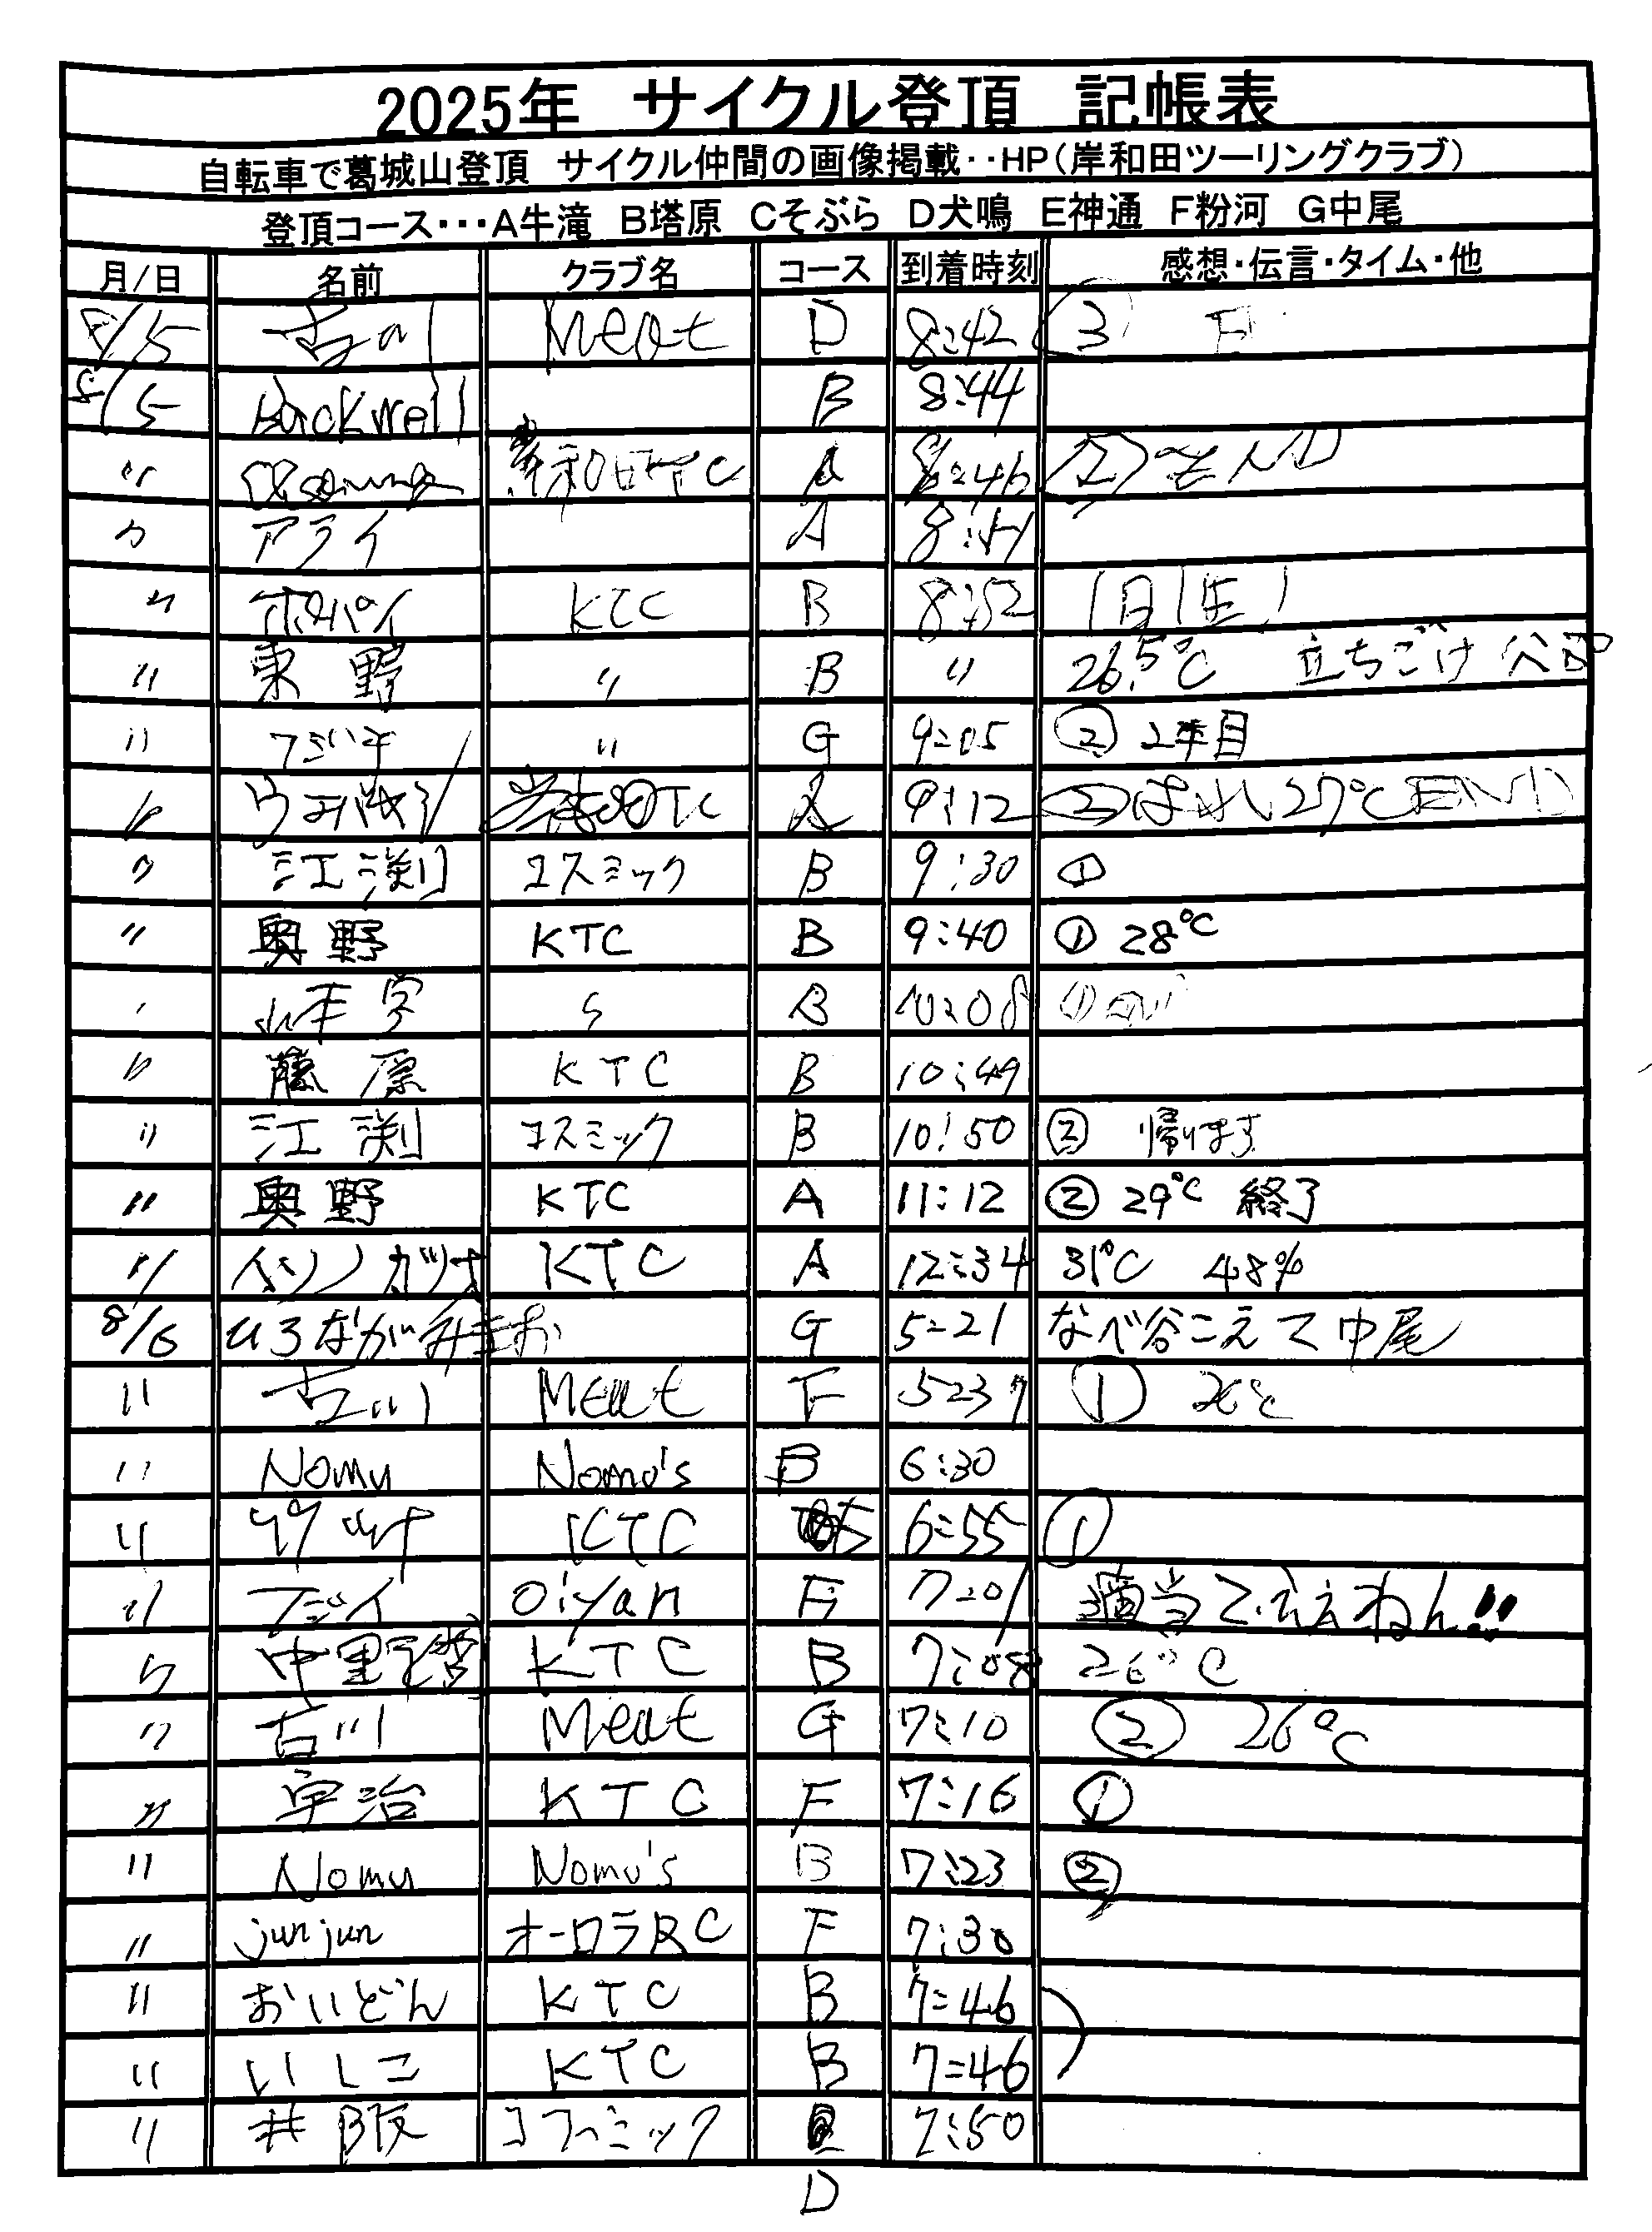 2025年 サイクル登頂 記帳表
自転車で葛城山登頂 サイクル仲間の画像掲載・・HP（岸和田ツーリングクラブ）
登頂コース・・・A牛滝 B塔原 Cそぶら D犬鳴 E神通 F粉河 G中尾
月/日 名前 クラブ名 コース 到着時刻 感想・伝言・タイム・他
8/5 古川 Meat D 8:42 ③
8/5 Backwell B 8:44
〃 岸和田TC A 8:46 ②
〃 アライ A
〃 ポパイ KTC B 8:52 1日1生!
〃 東野 〃 B 〃 26.5℃ 立ちごけ
〃 フジイチ 〃 G 9:05 ② 2年目
〃 A 9:12 ② 27℃ END
〃 江渕 コスミック B 9:30 ①
〃 奥野 KTC B 9:40 ① 28℃
〃 B 10:08 ①
〃 藤原 KTC B 10:49
〃 江渕 コスミック B 10:50 ② 帰ります
〃 奥野 KTC A 11:12 ② 29℃ 終了
〃 イソノカツオ KTC A 12:34 31℃ 48%
8/6 ひろながみきお G 5:21 なべ谷こえて中尾
〃 古川 Meat F 5:37 ① 26℃
〃 Nomu Nomu's B 6:30
〃 KTC 6:55 ①
〃 フジイ Oiyan F 7:01 適当でええねん!!
〃 KTC B 7:08 26℃
〃 古川 Meat G 7:10 ② 26℃
〃 宇治 KTC F 7:16 ①
〃 Nomu Nomu's B 7:23 ②
〃 junjun オーロラRC F 7:30
〃 おいどん KTC B 7:46
〃 いしこ KTC B 7:46
〃 井阪 コスミック 7:50
D